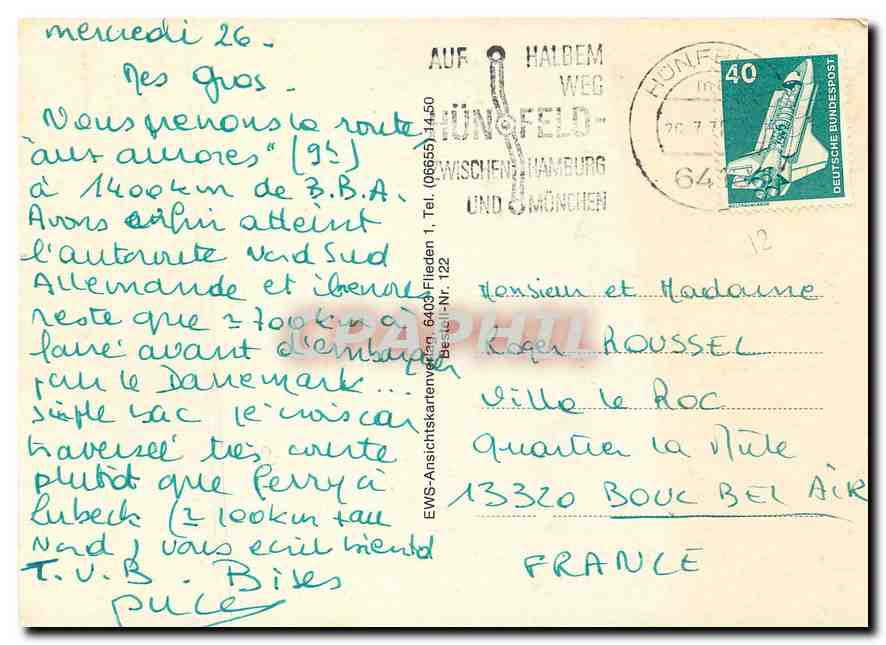 mercredi 26.
Mes gros.
Nous prenons la route
"aux aurores" (9h)
à 1400km de B.B.A.
Avons enfin atteint
l'autoroute Nord Sud
Allemande et il ne nous
reste que ≃ 700km à
faire avant d'embarquer
pour le Danemark...
simple bac je crois car
traversée très courte
plutôt que ferry à
Lubeck (≃ 100km + au
Nord) vous écrit bientôt
T.V.B. Bises
puce
EWS-Ansichtskartenverlag, 6403 Flieden 1, Tel. (06655) 1450
Bestell-Nr. 122
AUF HALBEM
WEG
HÜNFELD-
ZWISCHEN HAMBURG
UND MÜNCHEN
HÜNFELD
26.7.
40
DEUTSCHE BUNDESPOST
12
Monsieur et Madame
Roger ROUSSEL
Villa le Roc
Quartier la Mûle
13320 BOUC BEL AIR
FRANCE
CPAPHIL